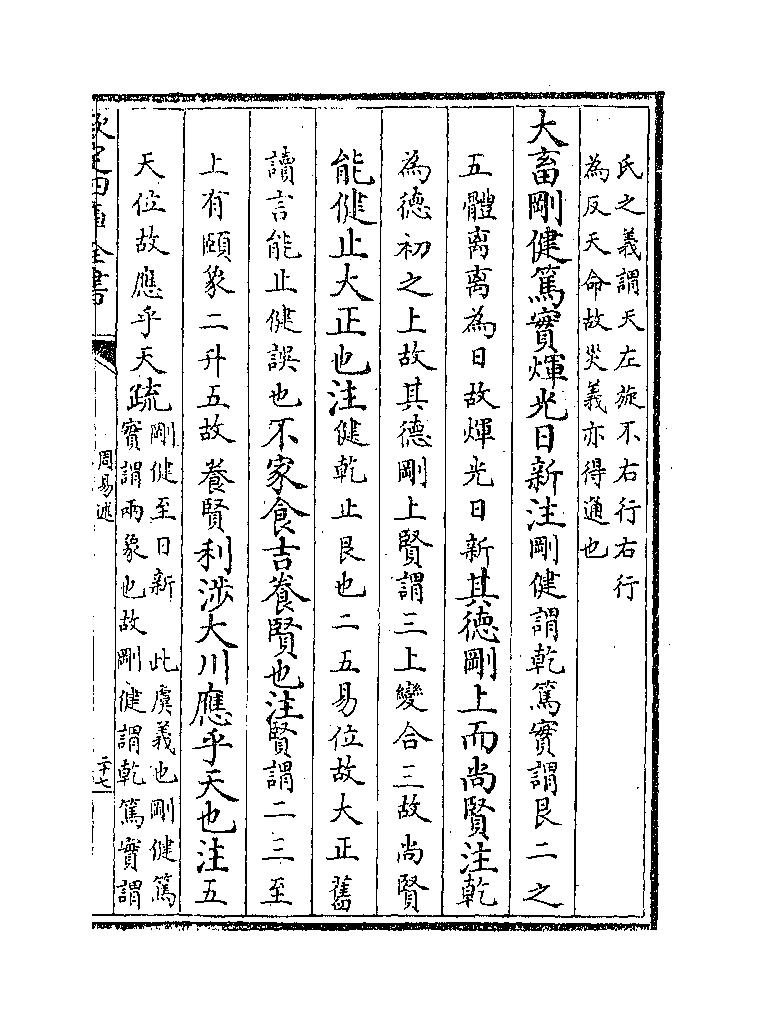 氏之義謂天左旋不右行右行
為反天命故災義亦得通也
大畜剛健篤實煇光日新注剛健謂乾篤實謂艮二之
五體离离為日故煇光日新其德剛上而尚賢注乾
為德初之上故其德剛上賢謂三上變合三故尚賢
能健止大正也注健乾止艮也二五易位故大正舊
讀言能止健誤也不家食吉養賢也注賢謂二三至
上有頤象二升五故養賢利涉大川應乎天也注五
天位故應乎天疏剛健至日新 此虞義也剛健篤
實謂兩象也故剛健謂乾篤實謂
欽定四庫全書
周易述
二十七